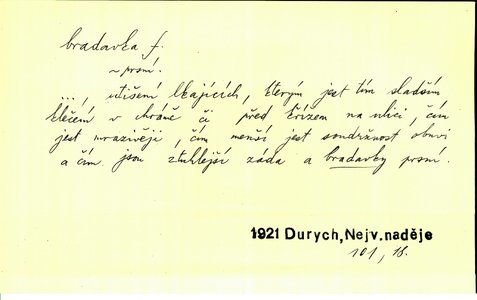 bradavka f.
~ prsní.
..., utišení lkajících, kterým jest tím sladším
klečení v chrámě či před křížem na ulici, čím
jest mrazivěji, čím menší jest soudržnost obuvi
a čím jsou ztuhlejší záda a bradavky prsní.
1921 Durych, Nejv. naděje
101, 18.